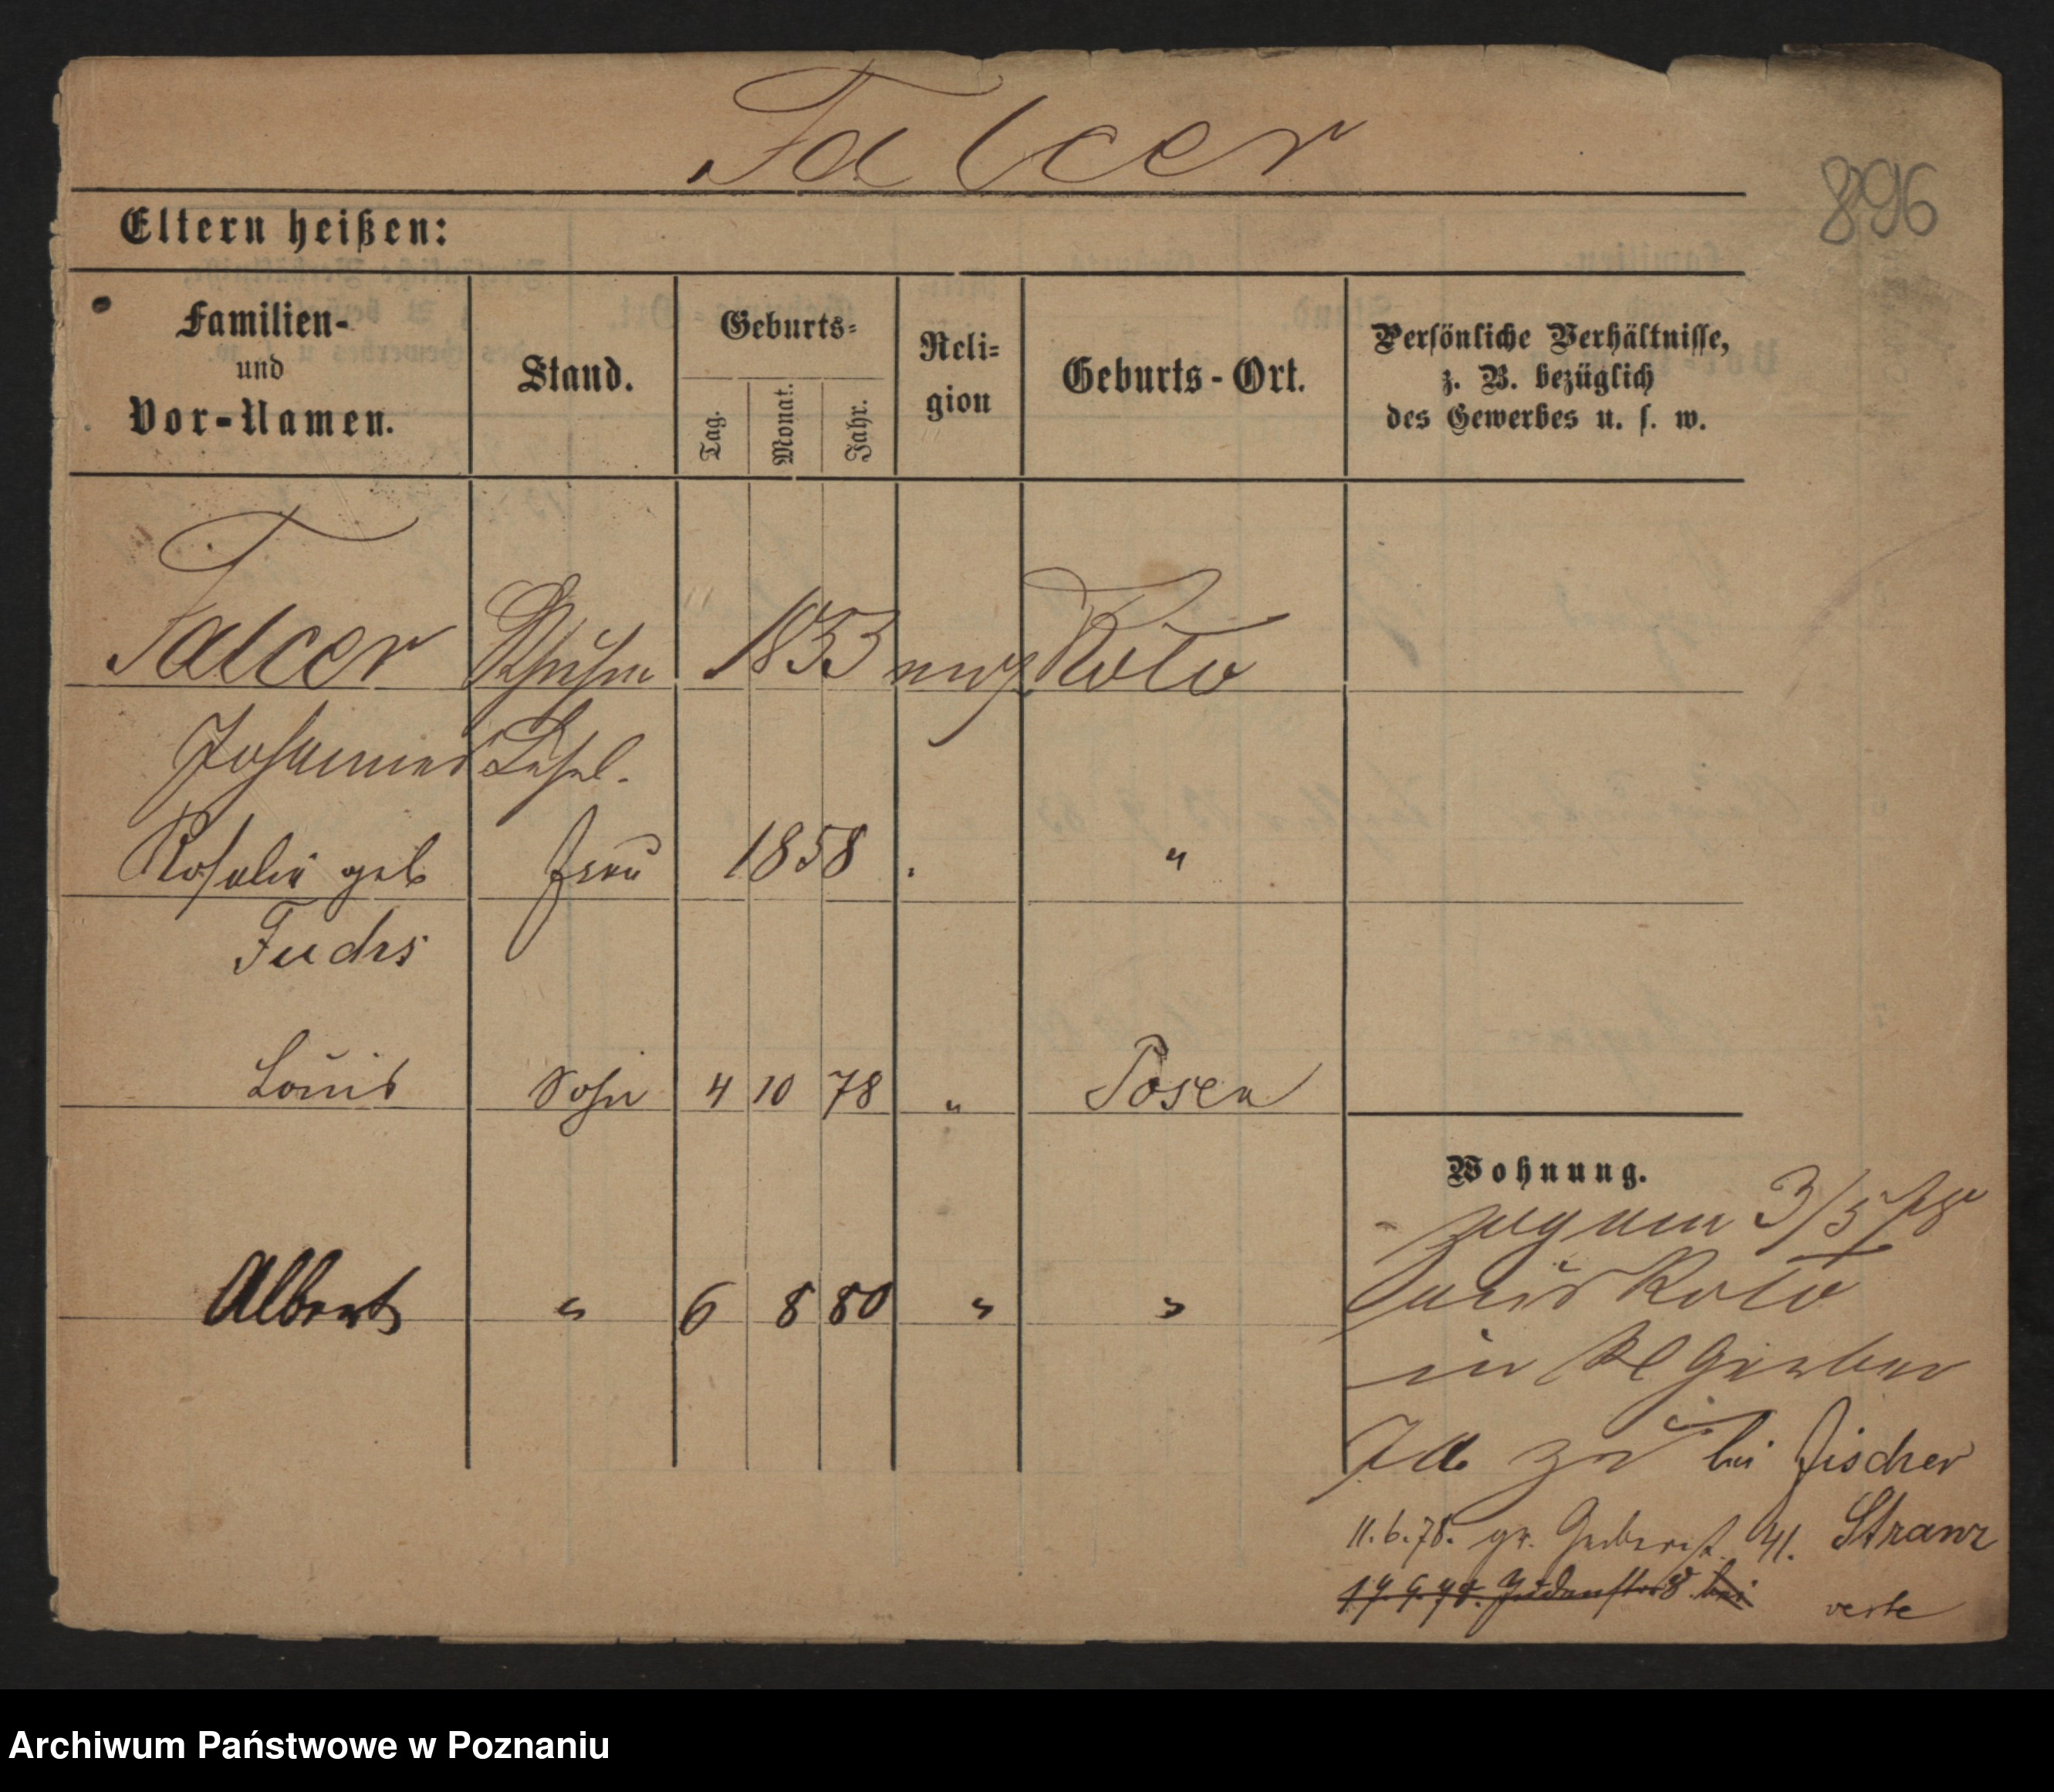 Falcer
896
Eltern heißen:
Familien-
und
Vor-Namen.
Stand.
Geburts-
Tag.
Monat.
Jahr.
Reli-
gion
Geburts-Ort.
Persönliche Verhältnisse,
z. B. bezüglich
des Gewerbes u. s. w.
Falcer 1853 Kolo
Johannes
Rosalie geb Frau 1858 "
Fuchs
Louis Sohn 4 10 78 " Posen
Albert " 6 8 80 " "
Wohnung.
zug am 3/5 78
aus Kolo
in Kl Gerber
7a bei Fischer
11.6.78. gr. Gerberst. 41. Stranz
Judenstr 8 bei
verte
Archiwum Państwowe w Poznaniu